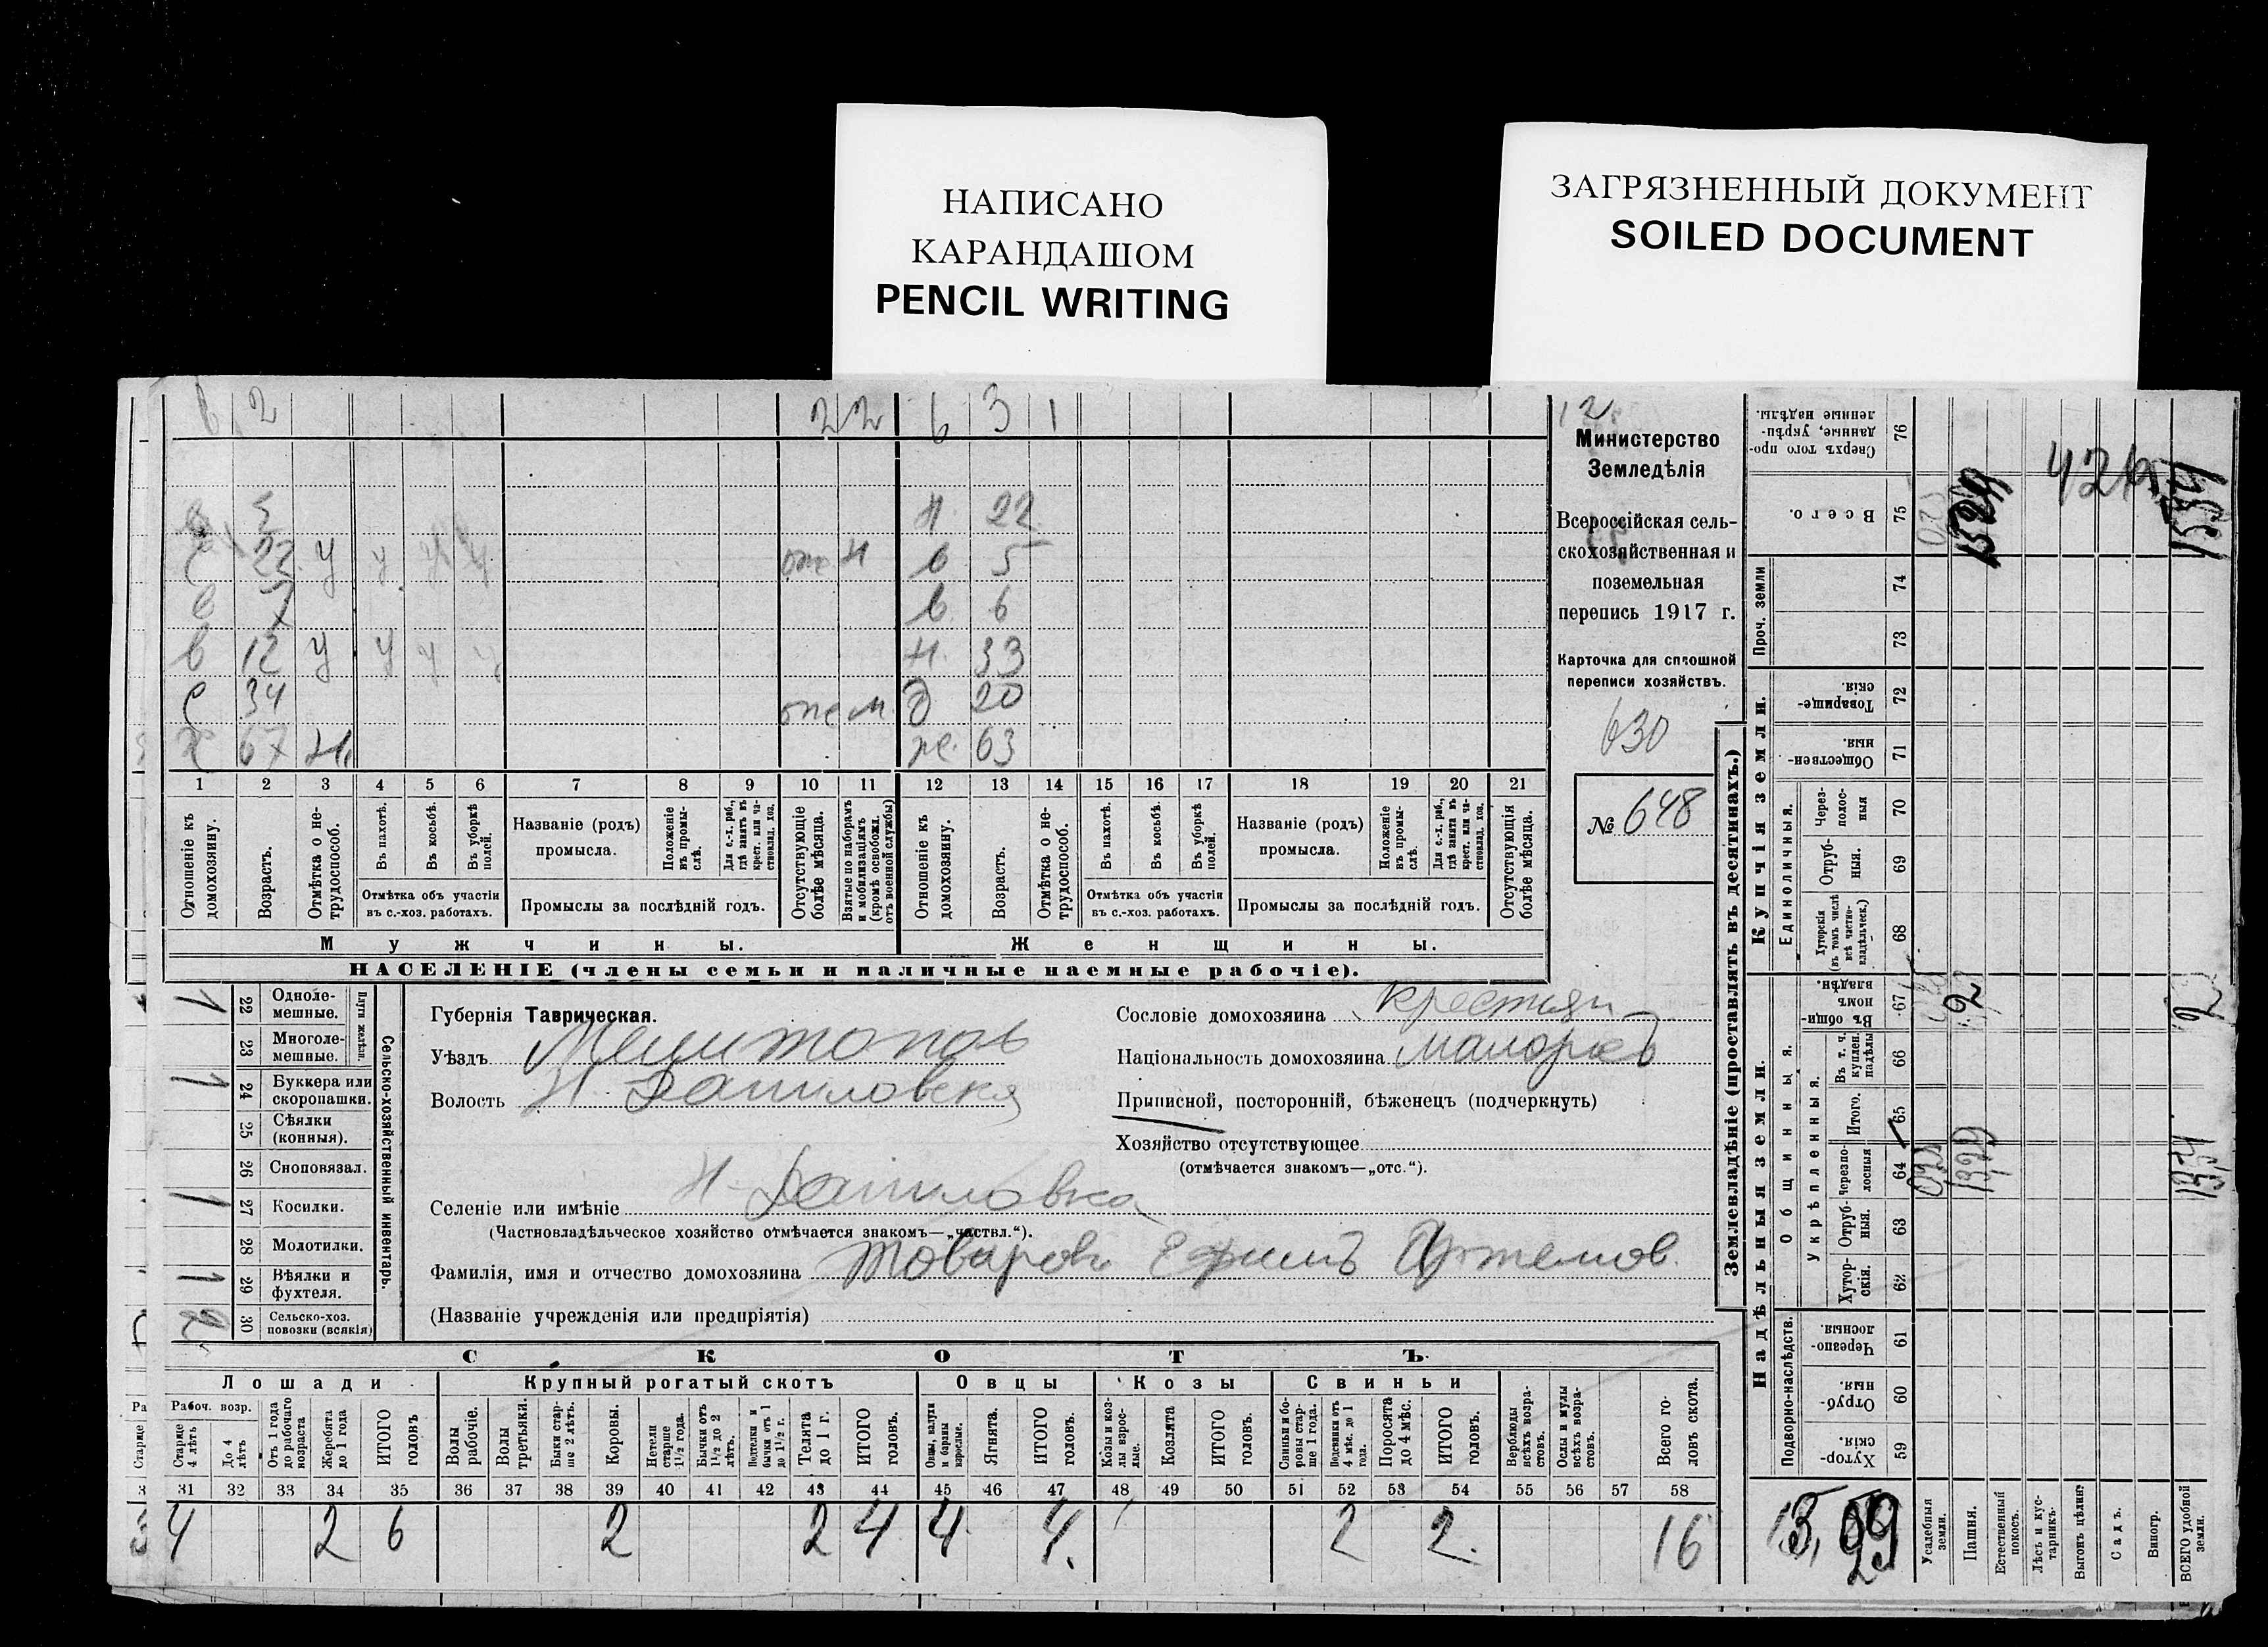 НАПИСАНО
КАРАНДАШОМ
PENCIL WRITING
ЗАГРЯЗНЕННЫЙ ДОКУМЕНТ
SOILED DOCUMENT
2 22 6 3 1
Н. 22
22 У У
в 5
в 6
в 12 У У У
Н. 33
34
20
67
же. 63
1 2 3 4 5 6 7 8 9 10 11 12 13 14 15 16 17 18 19 20 21
Отношеніе къ домохозяину.
Возрастъ.
Отмѣтка о не-трудоспособ.
Въ пахотѣ.
Въ косьбѣ.
Въ уборкѣ полей.
Отмѣтка объ участіи въ с.-хоз. работахъ.
Названіе (родъ) промысла.
Положеніе въ промы-слѣ.
Для с.-х. раб., гдѣ занятъ въ крест. или ча-стновлад. хоз.
Промыслы за послѣдній годъ.
Отсутствующіе болѣе мѣсяца.
Взятые по наборамъ и мобилизаціямъ (кромѣ освобожд. отъ военной службы)
Отношеніе къ домохозяину.
Возрастъ.
Отмѣтка о не-трудоспособ.
Въ пахотѣ.
Въ косьбѣ.
Въ уборкѣ полей.
Отмѣтка объ участіи въ с.-хоз. работахъ.
Названіе (родъ) промысла.
Положеніе въ промы-слѣ.
Для с.-х. раб., гдѣ занята въ крест. или ча-стновлад. хоз.
Промыслы за послѣдній годъ.
Отсутствующія болѣе мѣсяца.
Мужчины.
Женщины.
НАСЕЛЕНІЕ (члены семьи и наличные наемные рабочіе).
Министерство
Земледѣлія
Всероссійская сель-
скохозяйственная и
поземельная
перепись 1917 г.
Карточка для сплошной
переписи хозяйствъ.
630
№ 648
Сельско-хозяйственный инвентарь.
Плуги желѣзн.
1 22 Одноле-мешные.
23 Многоле-мешные.
1 24 Буккера или скоропашки.
25 Сѣялки (конныя).
26 Сноповязал.
1 27 Косилки.
28 Молотилки.
1 29 Вѣялки и фухтеля.
30 Сельско-хоз. повозки (всякія)
Губернія Таврическая.
Уѣздъ Мелитопов
Волость Н. Даниловская
Селеніе или имѣніе Н-Даниловка
(Частновладѣльческое хозяйство отмѣчается знакомъ—„частвл.“).
Фамилія, имя и отчество домохозяина Товаровъ Ефимъ Артемов.
(Названіе учрежденія или предпріятія)
Сословіе домохозяина крестьян
Національность домохозяина малорос
Приписной, посторонній, бѣженецъ (подчеркнуть)
Хозяйство отсутствующее
(отмѣчается знакомъ—„отс.“).
СКОТЪ
Лошади
Крупный рогатый скотъ
Овцы
Козы
Свиньи
Рабоч. возр.
Старше 4 лѣтъ
До 4 лѣтъ
Отъ 1 года до рабочаго возраста
Жеребята до 1 года
ИТОГО головъ
Волы рабочіе.
Волы третьяки.
Быки стар-ше 2 лѣтъ.
Коровы.
Нетели старше 1½ года.
Бычки отъ 1½ до 2 лѣтъ.
Подтелки и бычки отъ 1 до 1½ г.
Телята до 1 г.
ИТОГО головъ.
Овцы, валухи и бараны взрослые.
Ягнята.
ИТОГО головъ.
Козы и коз-лы взрос-лые.
Козлята
ИТОГО головъ.
Свиньи и бо-ровы стар-ше 1 года.
Подсвинки отъ 4 мѣс. до 1 года.
Поросята до 4 мѣс.
ИТОГО головъ.
Верблюды всѣхъ возра-стовъ.
Ослы и мулы всѣхъ возра-стовъ.
Всего го-ловъ скота.
31 32 33 34 35 36 37 38 39 40 41 42 43 44 45 46 47 48 49 50 51 52 53 54 55 56 57 58
4 2 6 2 2 4 4 4. 2 2. 16
Землевладѣніе (проставлять въ десятинахъ.)
Купчія земли.
Надѣльныя земли.
Сверхъ того про-данные, укрѣп-ленные надѣлы. 76
Всего. 75
Проч. земли 74 73
Товарище-скія. 72
Обществен-ныя. 71
Единоличныя.
Через-полос-ныя 70
Отруб-ныя. 69
Хуторскія (въ томъ числѣ всѣ частно-владѣльческ.) 68
Общинныя.
Въ общи-номъ владѣн. 67
Укрѣпленныя.
Въ т. ч. куплен. надѣлы 66
Итого. 65
Черезпо-лосныя 64
Отруб-ныя. 63
Хутор-скія. 62
Подворно-наслѣдств.
Черезпо-лосныя. 61
Отруб-ныя. 60
Хутор-скія. 59
Усадебныя земли.
Пашня.
Естественный покосъ.
Лѣсъ и кус-тарникъ.
Выгонъ цѣлинн.
Садъ.
Виногр.
ВСЕГО удобной земли.